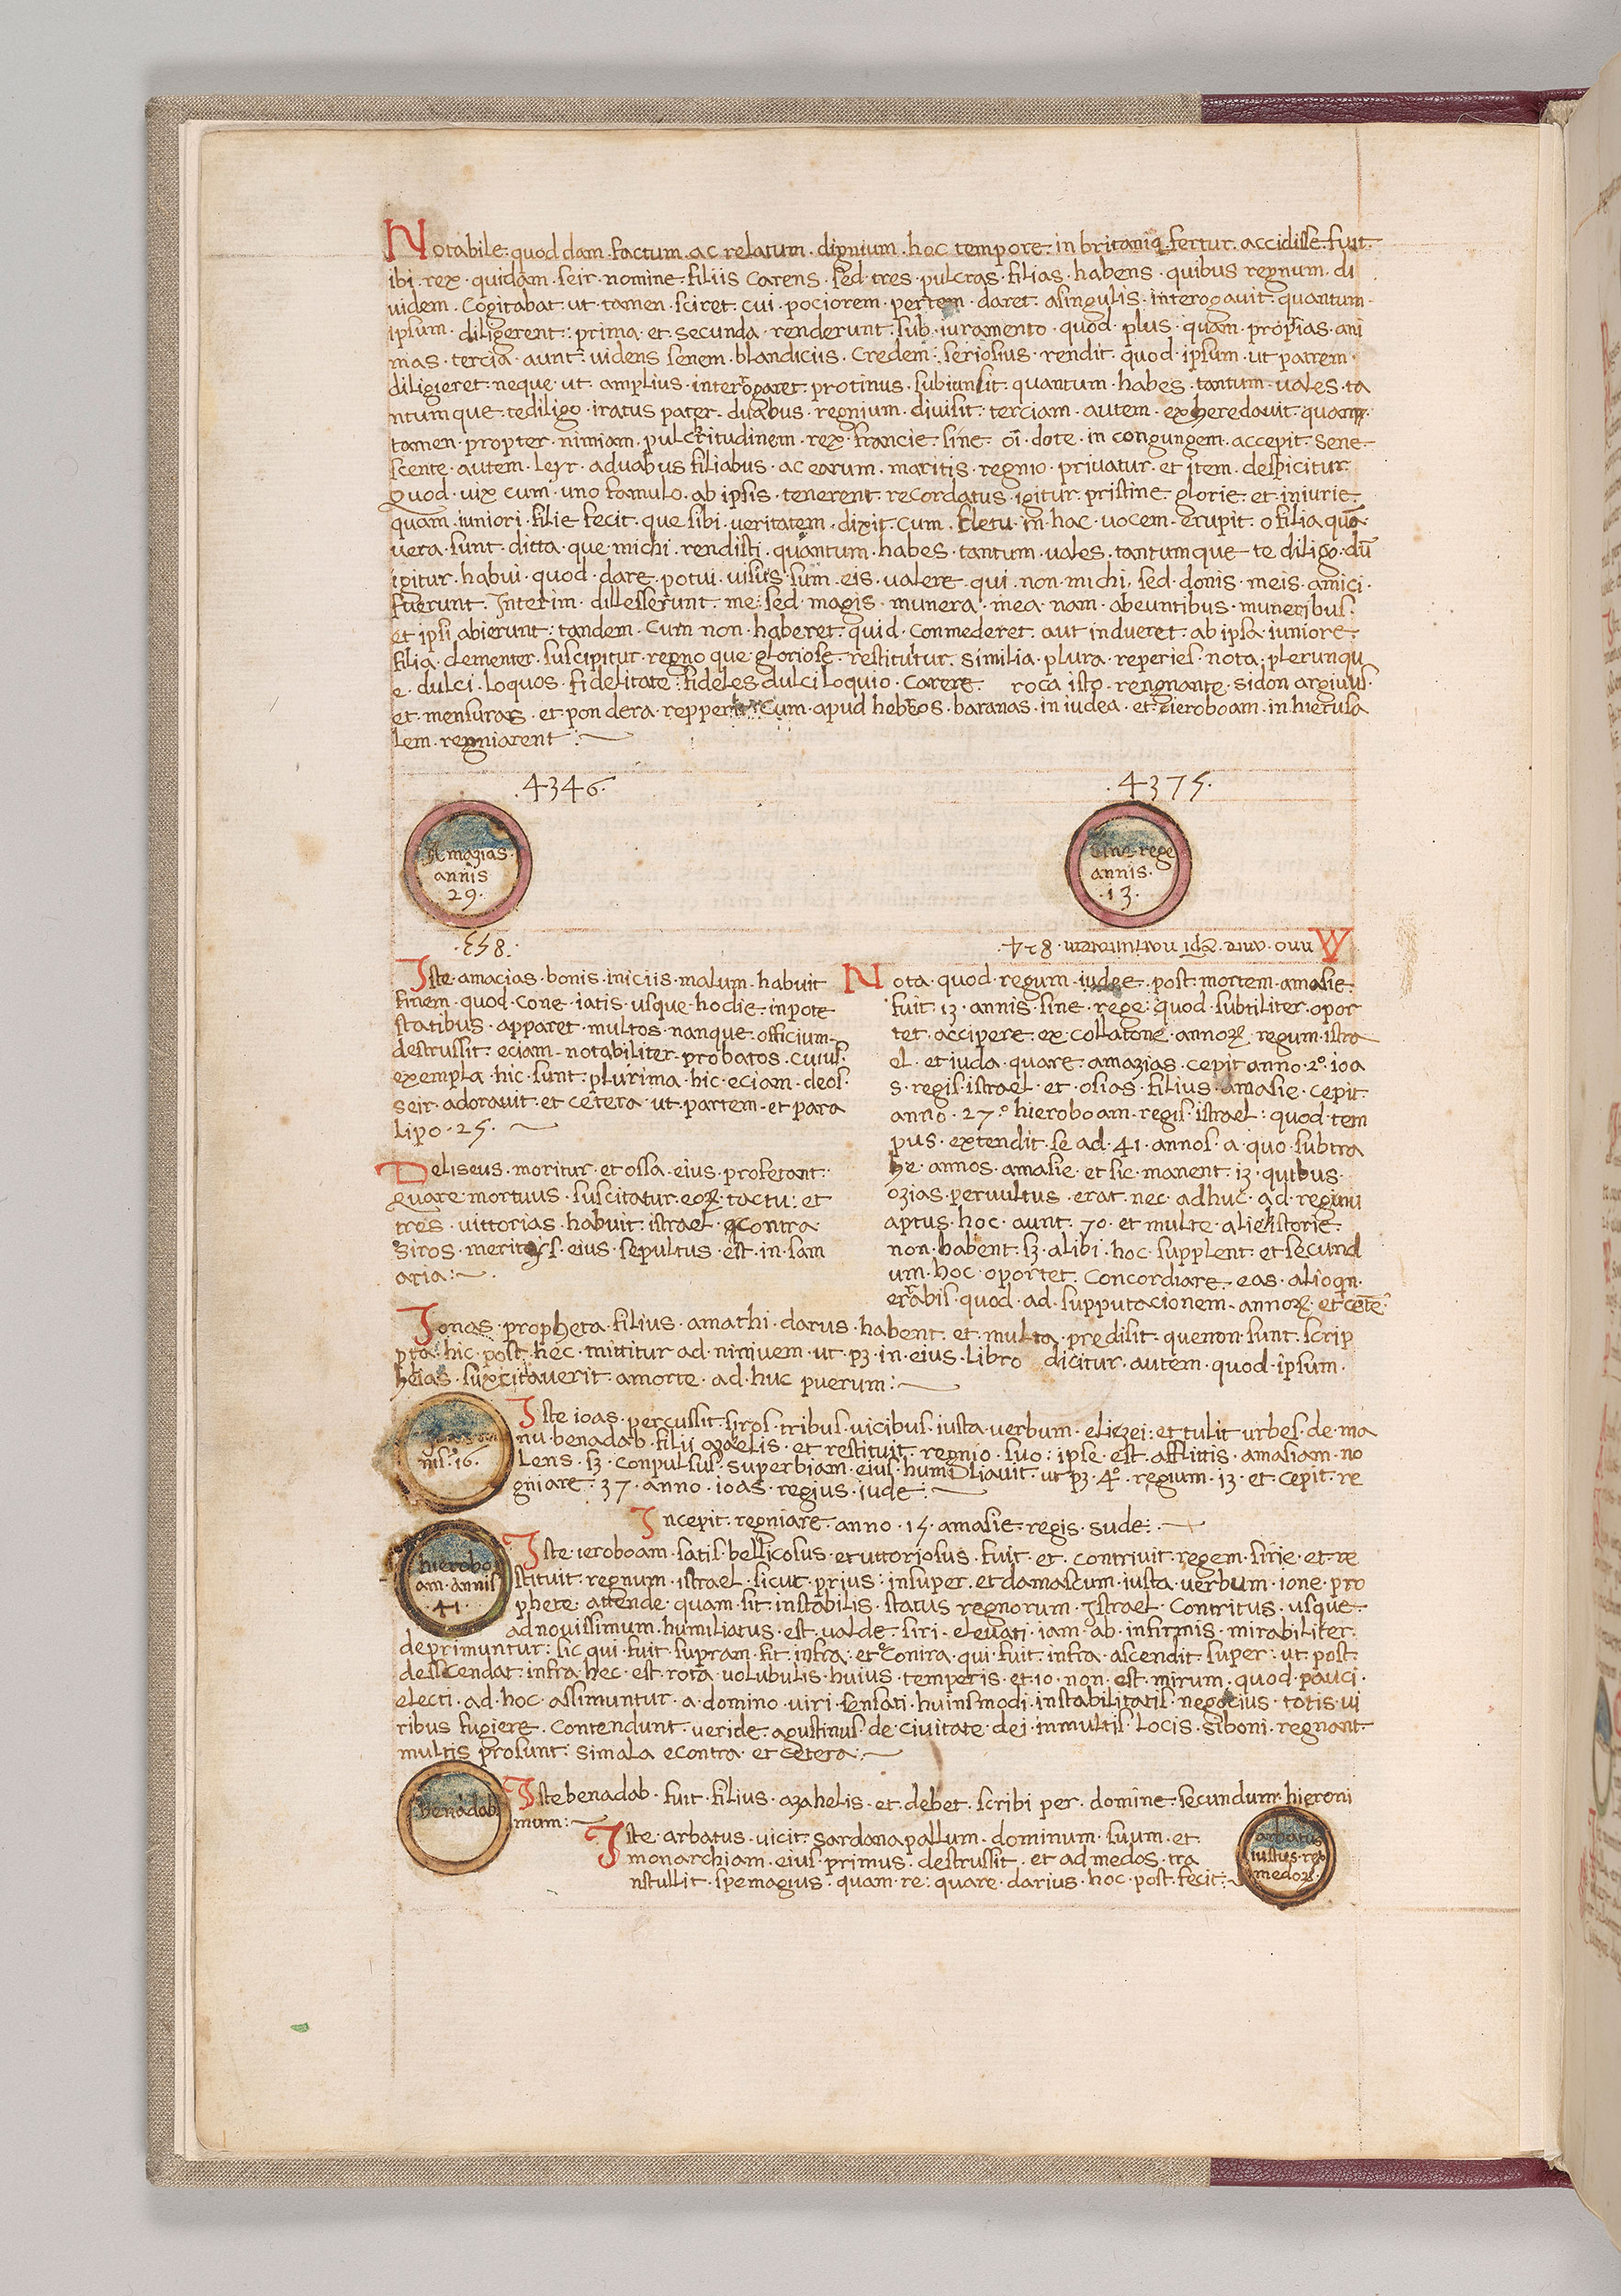 Notabile quod dam factum ac relatum dignium hoc tempore in britania fertur accidisse fuit
ibi rex quidam seir nomine filiis carens sed tres pulcras filias habens quibus regnum di
uidem cogitabat ut tamen sciret cui pociorem partem daret asingulis interogauit quantum
ipsum diligerent: prima et secunda renderunt sub iuramento quod plus quam propias ani
mas tercia aunt: uidens senem blandiciis credem: seriosius rendit quod ipsum ut patrem
diligieret neque ut amplius interrogaret protinus subiunsit quantum habes tantum uales ta
ntumque tediligo iratus pater duabus regnium diuisit terciam autem exheredauit quam
tamen propter nimiam pulcritudinem rex francie sine oi dote in congungem accepit sene
scente autem leyr aduabus filiabus ac earum maritis regnio priuatur et item despicitur
Quod uix cum uno famulo ab ipsis tenerent recordatus igitur pristine glorie et iniurie
quam iuniori filie fecit que sibi ueritatem dixit cum fletu in hac uocem erupit o filia quā
uera sunt ditta que michi rendisti quantum habes tantum uales tantumque te diligo dū
igitur habui quod dare potui uisus sum eis ualere qui non michi sed donis meis amici
fuerunt Interim dillesserunt me: sed magis munera mea nam abeuntibus muneribus
et ipsi abierunt: tandem cum non haberet quid conmederet aut indueret ab ipsa iuniore
filia clementer suscipitur regno que gloriose restituitur similia plura reperies nota plerunqu
e dulci loquos fidelitate: fideles dulciloquio carere roca isto rengnante sidon argiuus
et mensuras et pondera repperit cum apud hebreos baranas in iudea et ieroboam in hierusa
lem regniarent
4346 4375
Amazias annis 29
Sine rege annis 13
853 Anno ante Xpi natiuitatem 824
Iste amacias bonis iniciis malum habuit
finem quod cone iatis usque hodie inpote
statibus apparet multos nanque officium
destrussit eciam notabiliter probatos cuius
exempla hic sunt plurima hic eciam deos
seir adorauit et cetera ut partem et para
lipo 25
Deliseus moritur et ossa eius proferant
Quare mortuus suscitatur eoꝝ tactu: et
tres uittorias habuit istrael contra
siros meritis eius sepultus est in sam
aria
Nota quod regum iudee post mortem amasie
fuit 13 annis sine rege quod subtiliter opor
tet accipere ex collatone annoꝝ regum istra
el et iuda quare amazias cepit anno 2º ioa
s regis istrael et osias filius amasie cepit
anno 27º hieroboam regis istrael: quod tem
pus extendit se ad 41 annos a quo subtra
he annos amasie et sic manent 13 quibus
ozias peruultus erat nec adhuc ad regnu
aptus hoc aunt 70 et multe alie istorie
non habent sꝫ alibi hoc supplent et secund
um hoc oportet concordiare eas alioqn
errabis quod ad supputacionem annoꝝ et cete
Ionas propheta filius amathi darus habent et multa predisit quenon sunt scrip
pta: hic post hec mittitur ad niniuem ut pꝫ in eius libro dicitur autem quod ipsum
helias suxcitauerit amorte ad huc puerum
nis 16
Iste ioas percussit siros tribus uicibus iusta uerbum eliezei: et tulit urbes de ma
nu benadab filii azaelis et restituit regnio suo: ipse est afflittis amasiam no
lens sꝫ conpulsus superbiam eius humiliauit ut pꝫ 4º regum 13 et cepit re
gniare 37 anno ioas regius iude
Incepit regniare anno 15 amasie regis sude
hierobo am annis 41
Iste ieroboam satis bellicosus et uttoriosus fuit et contriuit regem sirie et re
stituit regnum istrael sicut prius: insuper et damascum iusta uerbum ione pro
phete attende quam sit instabilis status regnorum Istrael contritus usque
adnouissimum humiliatus est ualde siri eleuati iam ab infirmis mirabiliter
deprimuntur: sic qui fuit supram fit infra et contra qui fuit infra ascendit super: ut post
desscendat infra hec est rota uolubilis huius temperis et io non est mirum quod pauci
electi ad hoc assimuntur a domino uiri sensati huinsmodi instabilitatis negocius totis ui
ribus fugiere contendunt ueride agustinus de ciuitate dei inmultis locis siboni regnant
multis prosunt: simala econtra et cetera
benadab
Iste benadab fuit filius azahelis et debet scribi per domine secundum hieroni
mum
Iste arbatus uicit sardanapallum dominum suum et
monarchiam eius primus destrussit et ad medos tra
nstullit spemagius quam re: quare darius hoc post fecit
arbatus iustus rex medoꝝ